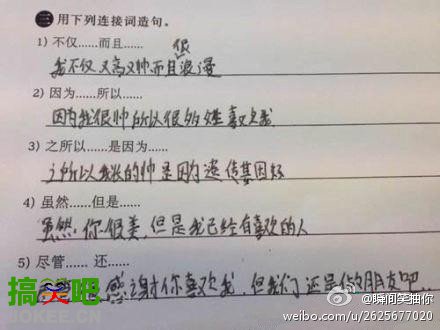 三 用下列连接词造句。
1) 不仅……而且……
我不仅又高又帅而且很浪漫
2) 因为……所以……
因为我很帅所以很多姓喜欢我
3) 之所以……是因为……
之所以我长的帅是因为遗传基因好
4) 虽然……但是……
虽然你很美,但是我已经有喜欢的人
5) 尽管…… 还……
感谢你喜欢我,但我们还是做朋友吧..
搞笑吧
JOKEE.CC
@瞬间笑抽你
weibo.com/u/2625677020